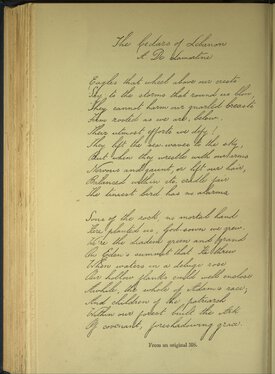 The Cedars of Lebanon
A De Lamartine
Eagles that wheel above our crests
Say to the storms that round us blow,
They cannot harm our gnarled breasts
Firm rooted as we are, below.
Their utmost efforts we defy!
They lift the sea waves to the sky,
But when they wrestle with our arms
Nervous and gaunt, or lift our hair,
Balanced within its cradle fair
The tiniest bird has no alarms
Sons of the rock, no mortal hand
Here planted us, God-sown we grew.
We're the diadem green and grand
On Eden's summit that He threw
When waters in a deluge rose
Our hollow flanks could well enclose
Awhile, the whole of Adam's race;
And children of the patriarch
Within our forest built the Ark
Of covenant, foreshadowing grace.
From an original MS.